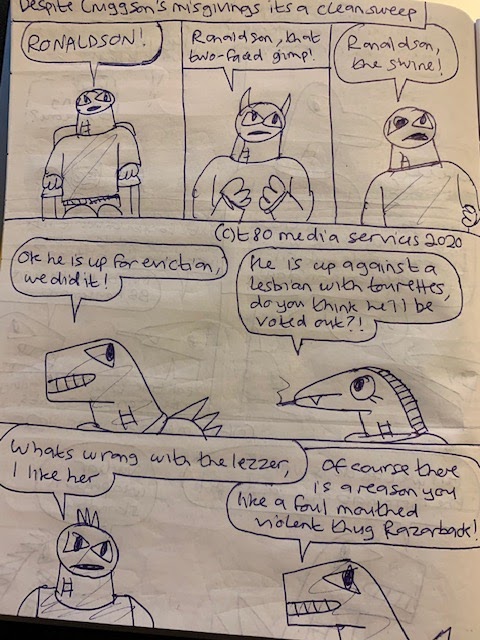 Despite Cruggson's misgivings its a clean sweep
RONALDSON!
Ronaldson, that
two-faced gimp!
Ronaldson,
the swine!
(C)t80 media services 2020
Ok he is up for eviction,
we did it!
He is up against a
lesbian with tourettes,
do you think he'll be
voted out?!
Whats wrong with the lezzer,
I like her
Of course there
is a reason you
like a foul mouthed
violent thug Razarback!